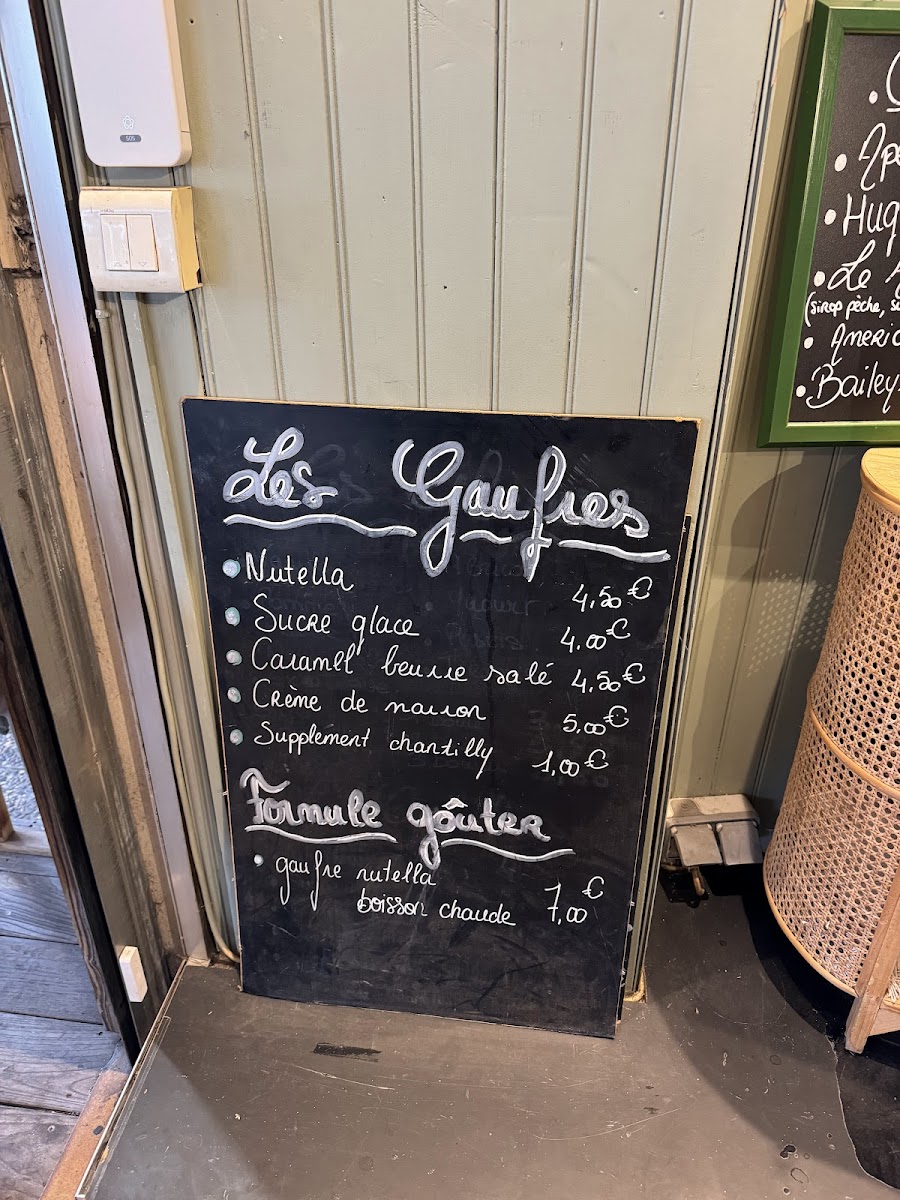 SOS
Les Gaufres
Nutella 4,50€
Sucre glace 4.00€
Caramel beurre salé 4,50€
Crème de marron 5,00€
Supplément chantilly 1,00€
Formule goûter
gaufre nutella
boisson chaude 7,00€
(sirop pêche,
Bailey